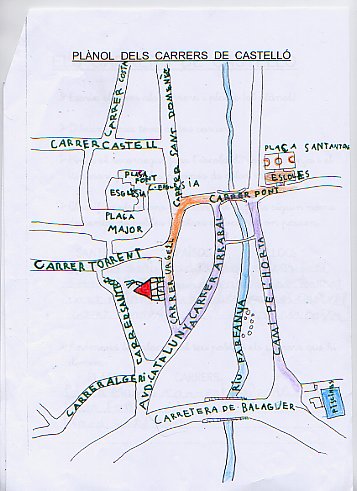 PLÀNOL DELS CARRERS DE CASTELLÓ
CARRER COSTA
CARRER SANT DOMÈNEC
CARRER CASTELL
PLAÇA SANT ANTONI
PLAÇA
FONT
ESGLÉSIA
ESCOLES
CARRER PONT
PLAÇA
MAJOR
CARRER TORRENT
CARRER URGELL
CARRER ARRABAL
CAMÍ DE L'HORTA
RIU FARFANYA
AVD. CATALUNYA
CARRER ALGERI
CARRETERA DE BALAGUER
PISCINES